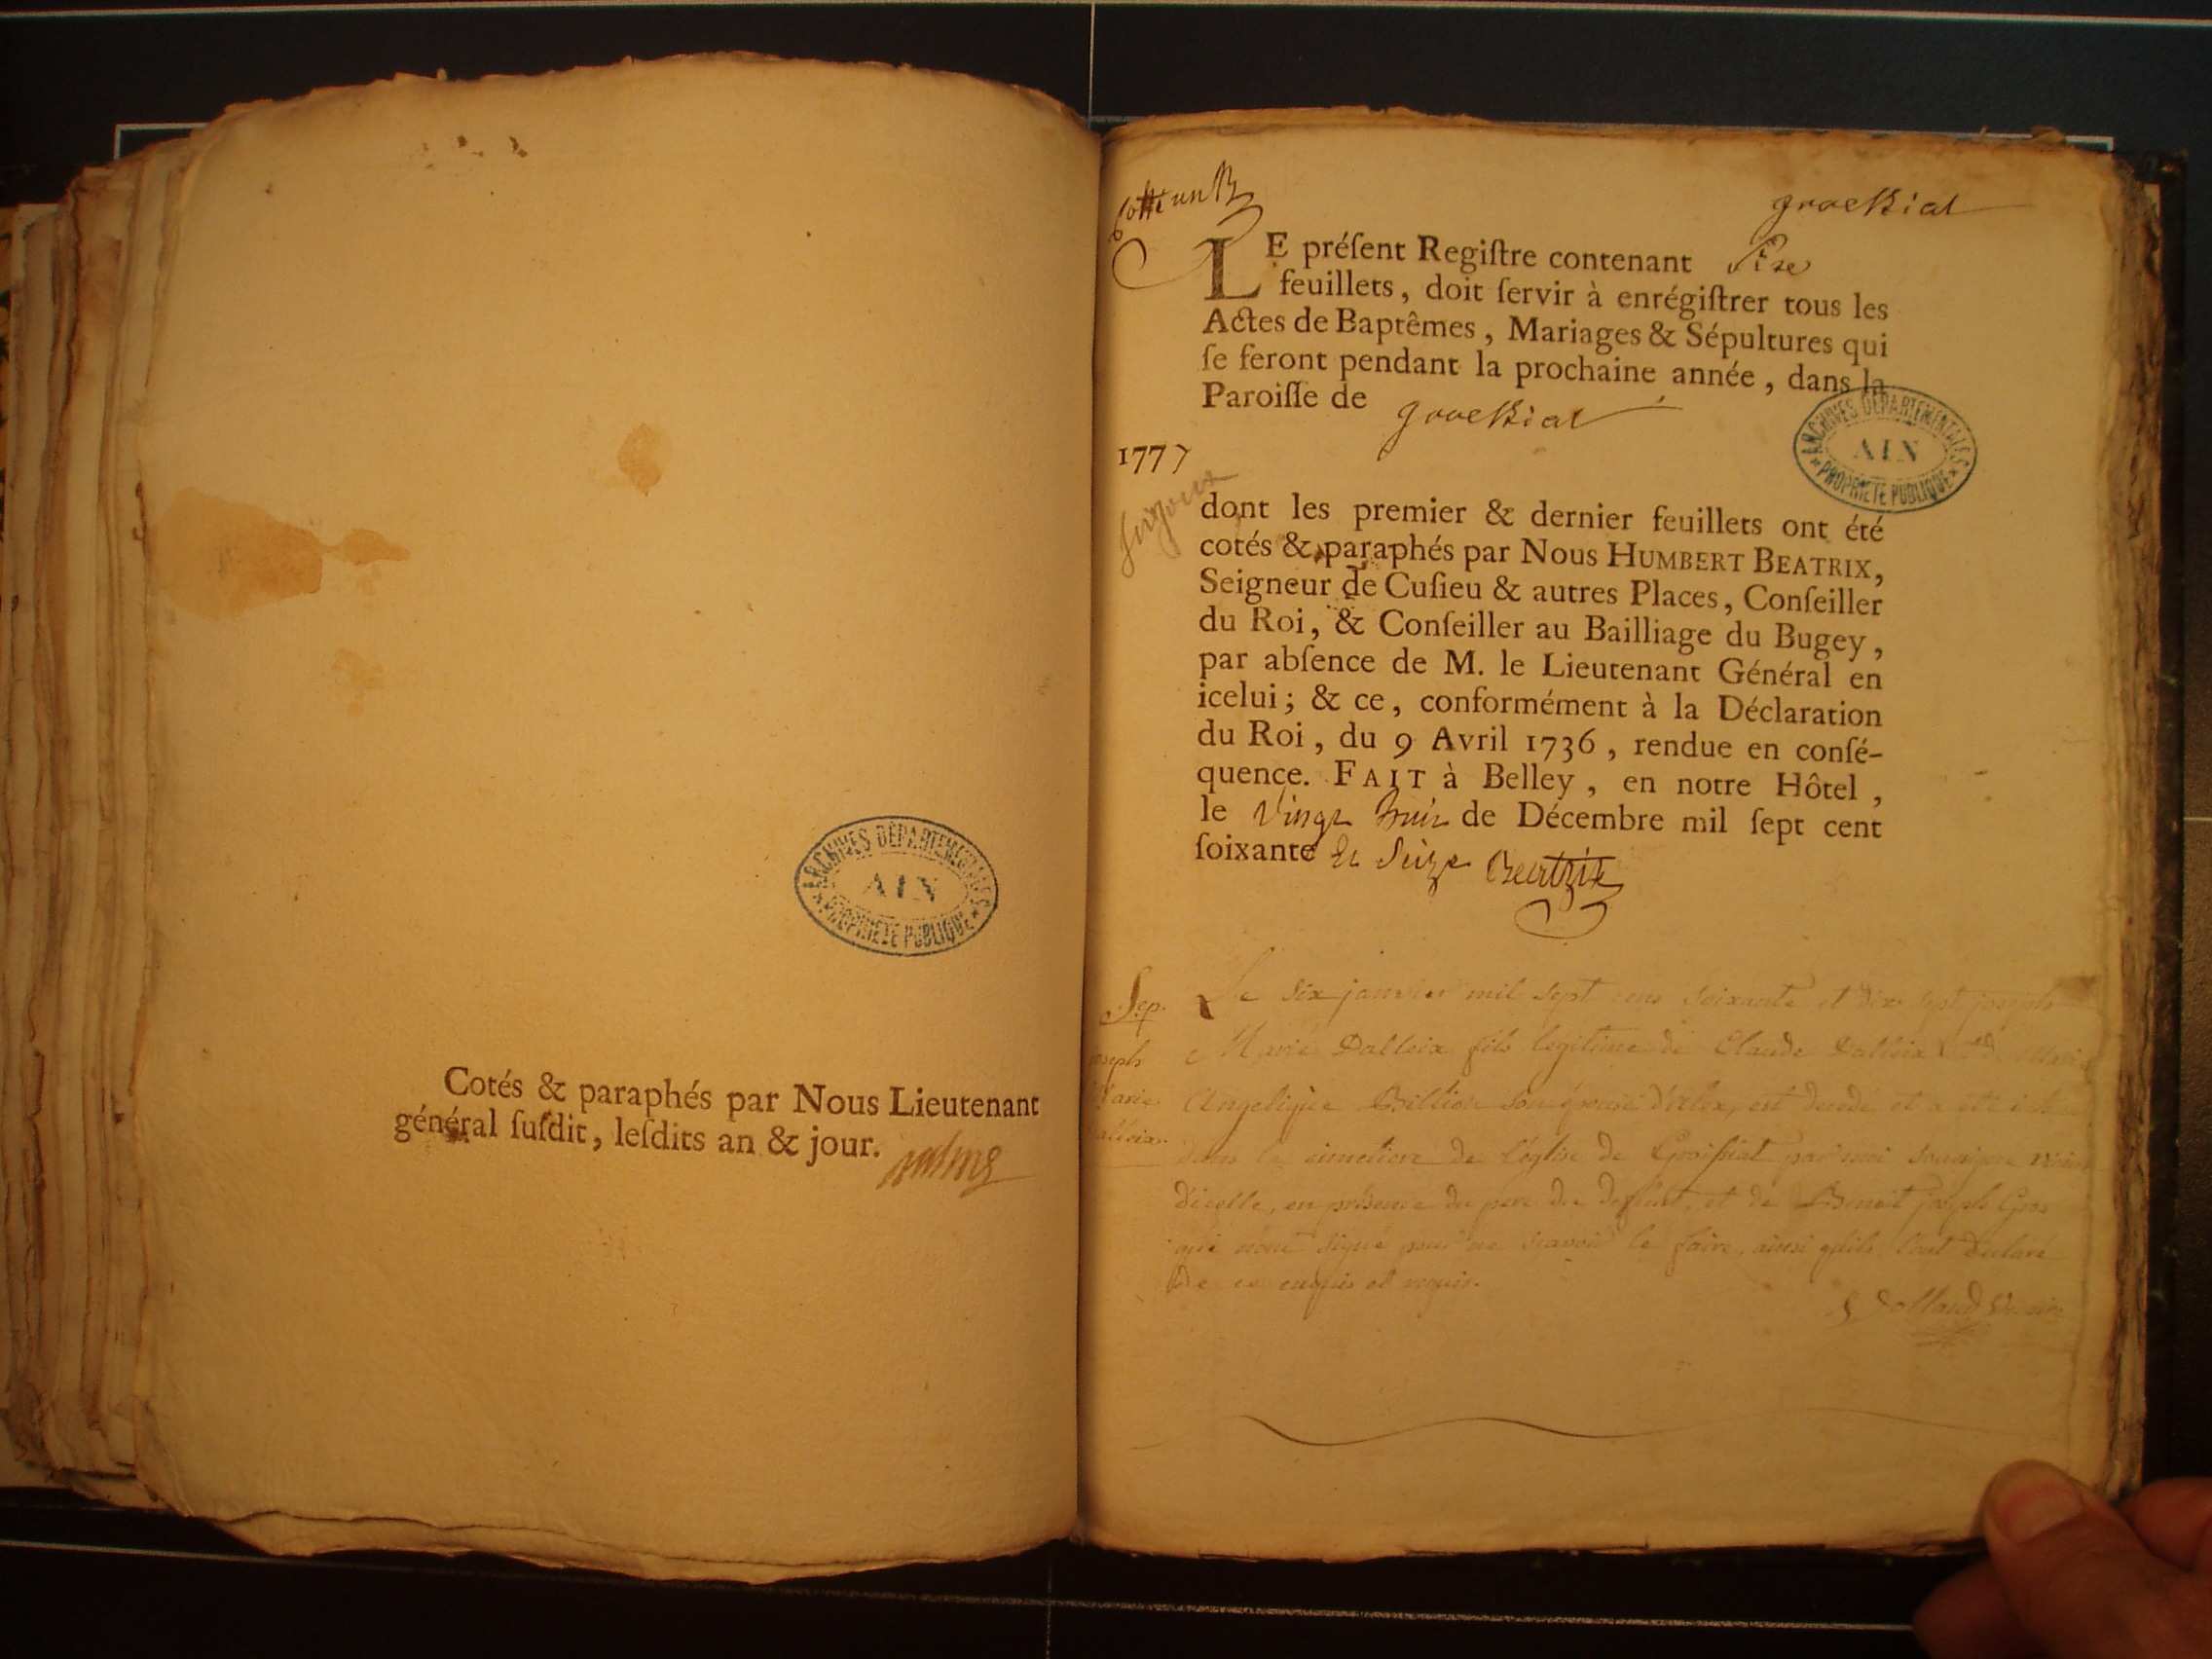 ARCHIVES DÉPARTEMENTALES
AIN
PROPRIÉTÉ PUBLIQUE
Cotés & paraphés par Nous Lieutenant
général ſuſdit, leſdits an & jour.
LE préſent Regiſtre contenant
feuillets, doit ſervir à enrégiſtrer tous les
Actes de Baptêmes, Mariages & Sépultures qui
ſe feront pendant la prochaine année, dans la
Paroiſſe de
ARCHIVES DÉPARTEMENTALES
AIN
PROPRIÉTÉ PUBLIQUE
1777
dont les premier & dernier feuillets ont été
cotés & paraphés par Nous HUMBERT BEATRIX,
Seigneur de Cuſieu & autres Places, Conſeiller
du Roi, & Conſeiller au Bailliage du Bugey,
par abſence de M. le Lieutenant Général en
icelui; & ce, conformément à la Déclaration
du Roi, du 9 Avril 1736, rendue en conſé-
quence. FAIT à Belley, en notre Hôtel,
le vingt huit de Décembre mil ſept cent
ſoixante et Seize Beatrix
Sep. Le six janvier mil sept cens soixante et dix sept joseph
joseph Marie Dalloix fils legitime de Claude Dalloix et de Marie
Marie Angelique Billion son épouse est decedé et a été
Dalloix dans le cimetiere de l'église de Groissiat par moi soussigné vicaire
d'icelle, en présence du pere du deffunt, et de Benoit joseph Gros
qui n'ont signé pour ne sçavoir le faire, ainsi qu'ils l'ont declaré
de ce enquis et requis.